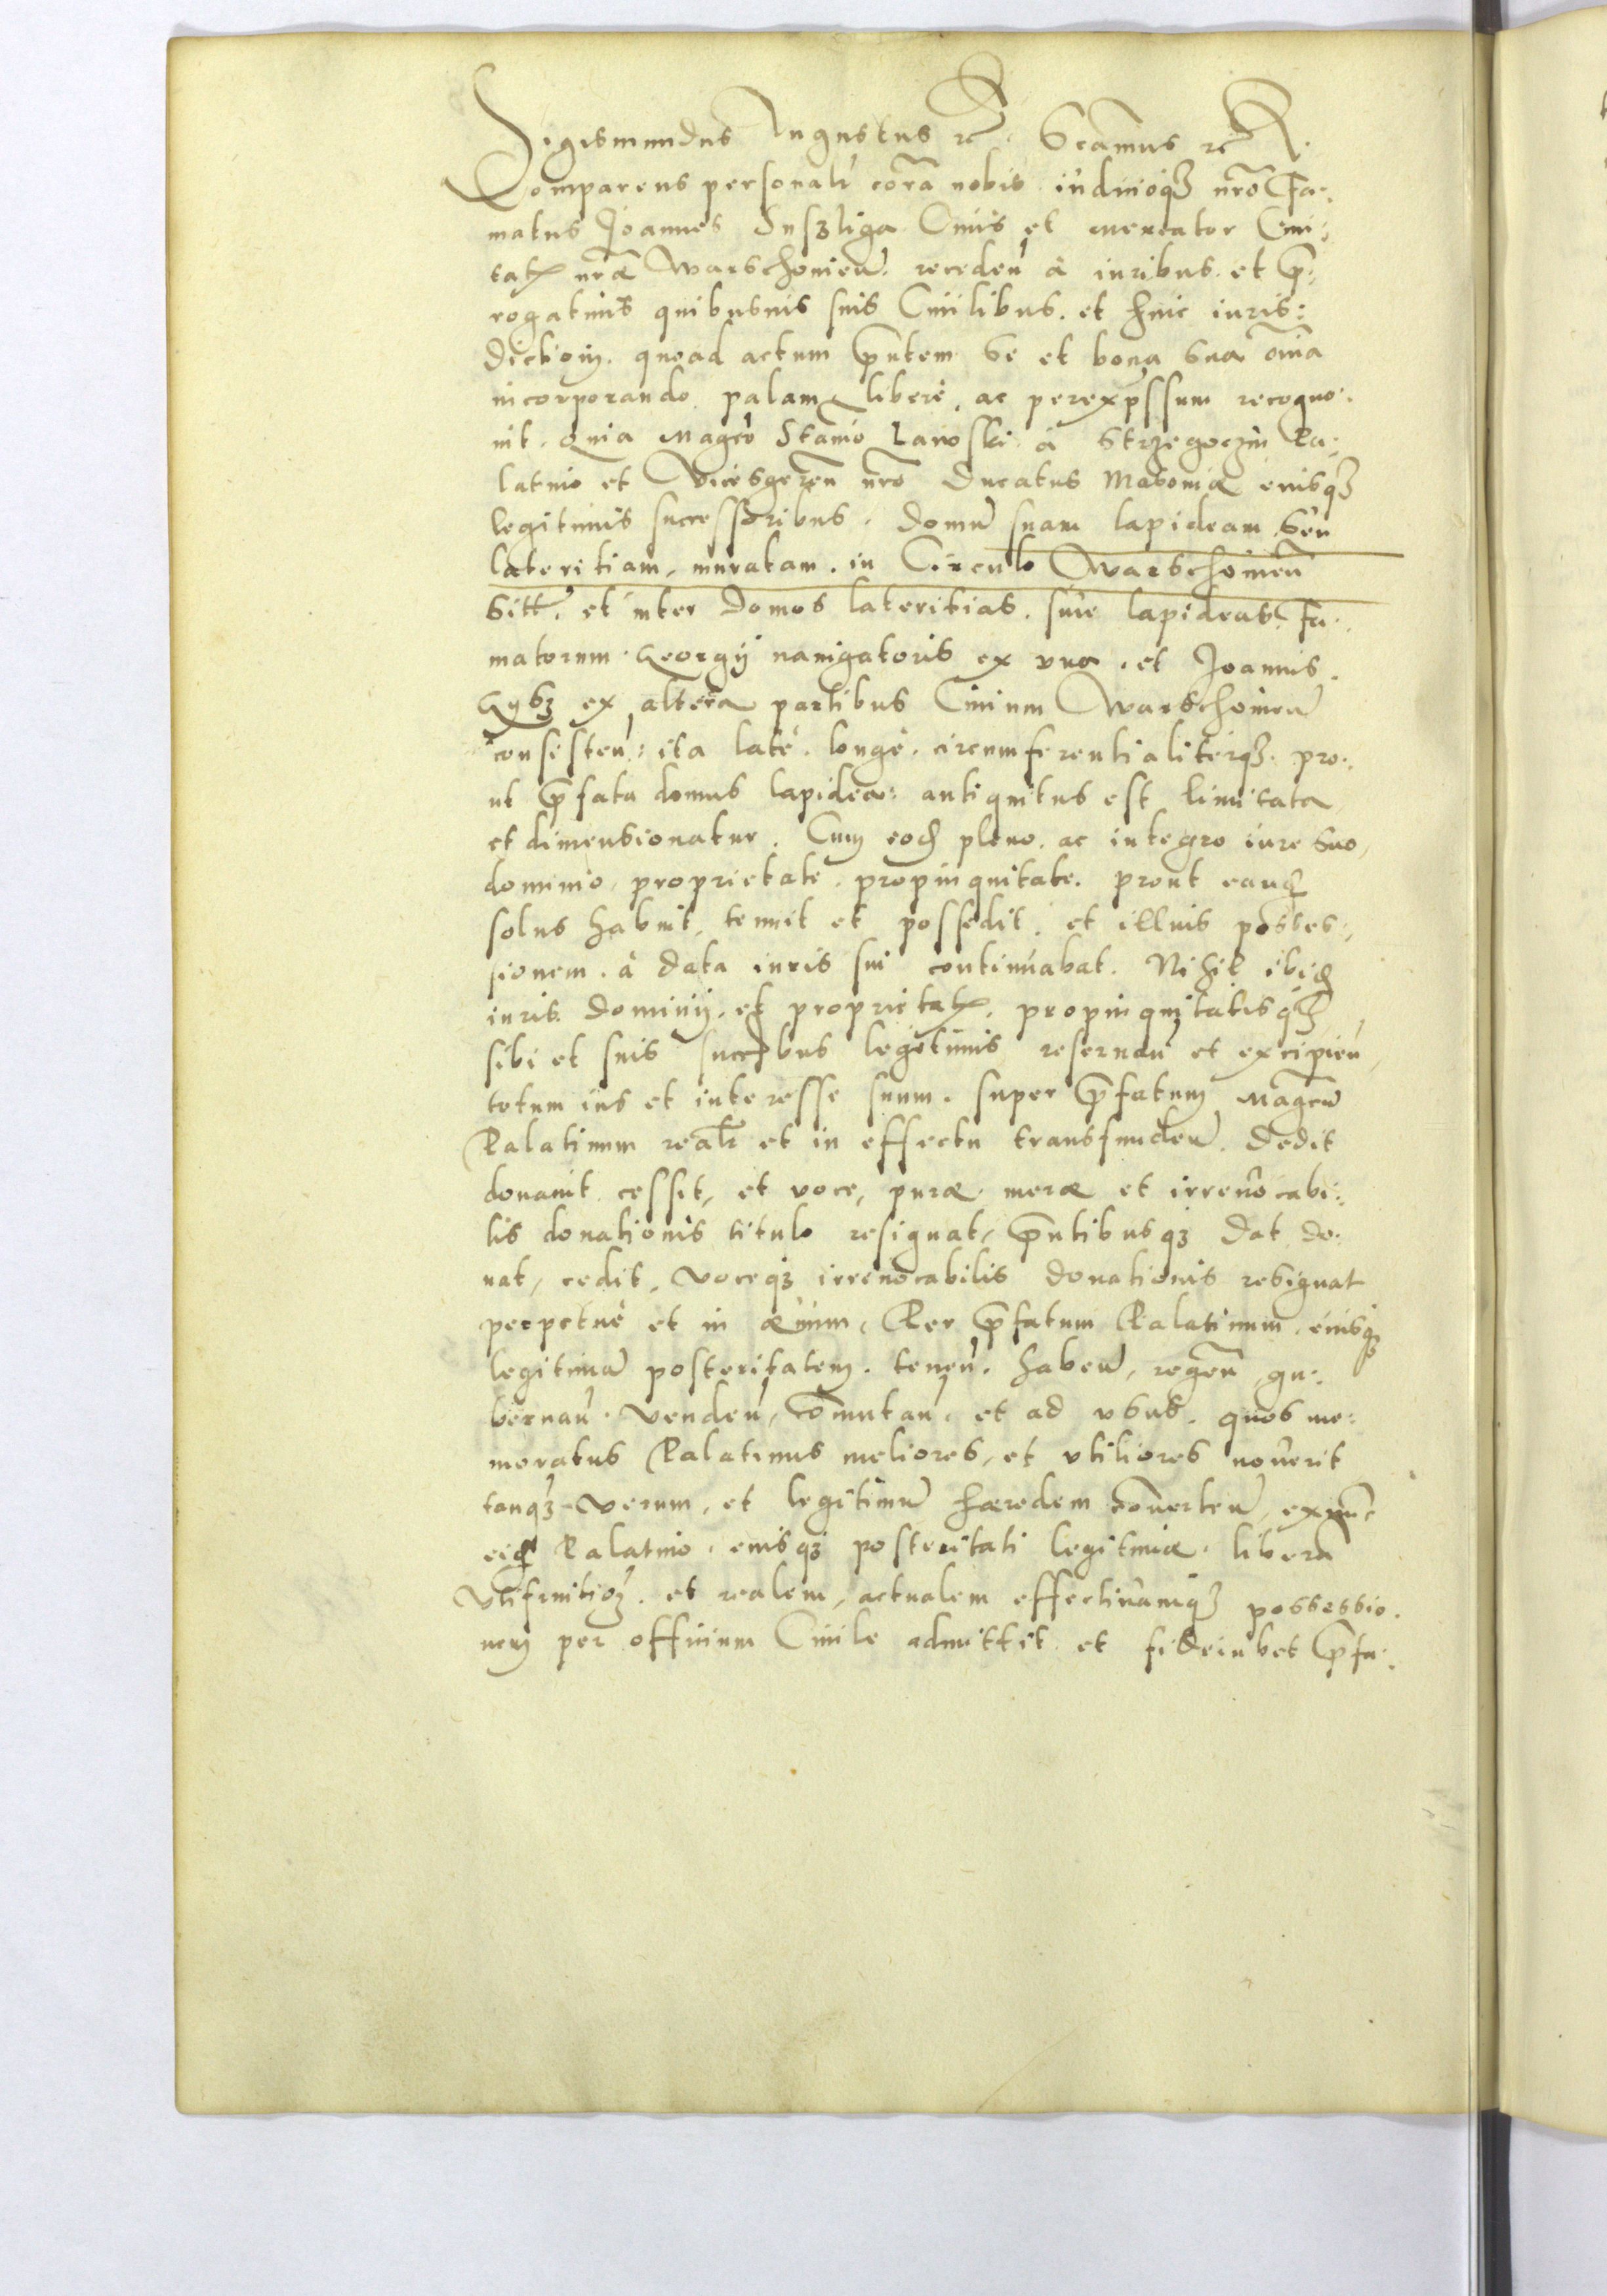 Sigismundus Augustus etc. Scimus etc.
Comparens personalr corã nobis iudicioqȝ nro Fa:
matus Joannes Suszliga Ciuis et mercator Ciui:
tatis nrae Warschouien. receden à iuribus et p̃:
rogatiuis quibusuis suis Ciuilibus. et huic iuris:
dictioni. quoad actum p̃ntem se et bona sua oĩa
incorporando palam, libere, ac per exp̃ssum recogno:
uit. Quia Magco Stanio Lawski à Strzegoczin Pa:
latino et Vicesgeren nro Ducatus Masouiae eiusqȝ
legitimis successoribus. Domũ suam lapideam seu
lateritiam, muratam. in Circulo Warschouien
sitt. et inter Domos lateritias. siue lapideas Fa:
matorum Georgij nauigatoris ex vna. et Joannis
Gysz ex altera partibus Ciuium Warschouien
consisten: ita latè. longè. circumferentialiterqȝ. pro:
ut p̃fata domus lapidea: antiquitus est limitata
et dimensionatur. Cum eod pleno. ac integro iure suo,
dominio, proprietate. propinquitate. prout eand
solus habuit, tenuit et possedit. et illius posses:
sionem. à data iuris sui continuabat. Nihil ibid
iuris. dominij. et proprietatis. propinquitatisqȝ
sibi et suis succbus legitimis reseruan et excipien,
totum ius et interesse suum. super p̃fatum Magcũ
Palatinum realr et in effectu transfunden. Dedit
donauit cessit, et voce, purae merae et irreuocabi:
lis donationis titulo resignat, p̃ntibusqȝ dat do:
nat, cedit, voceqȝ irreuocabilis donationis resignat
perpetuè et in aeuum, Per p̃fatum Palatinum, eiusqȝ
legitimã posteritatem. tenen. haben, regen, gu:
bernan. venden, cõmutan, et ad vsus. quos me:
moratus Palatinus meliores, et vtiliores nouerit
tanqȝ verum, et legitimũ haeredem conuerten, exnunc
eid Palatino, eiusqȝ posteritati legitimae. liberã
vtifruitionem. et realem, actualem effectiuamqȝ possessio:
nem per officium Ciuile admittit et fideiubet p̃fa: